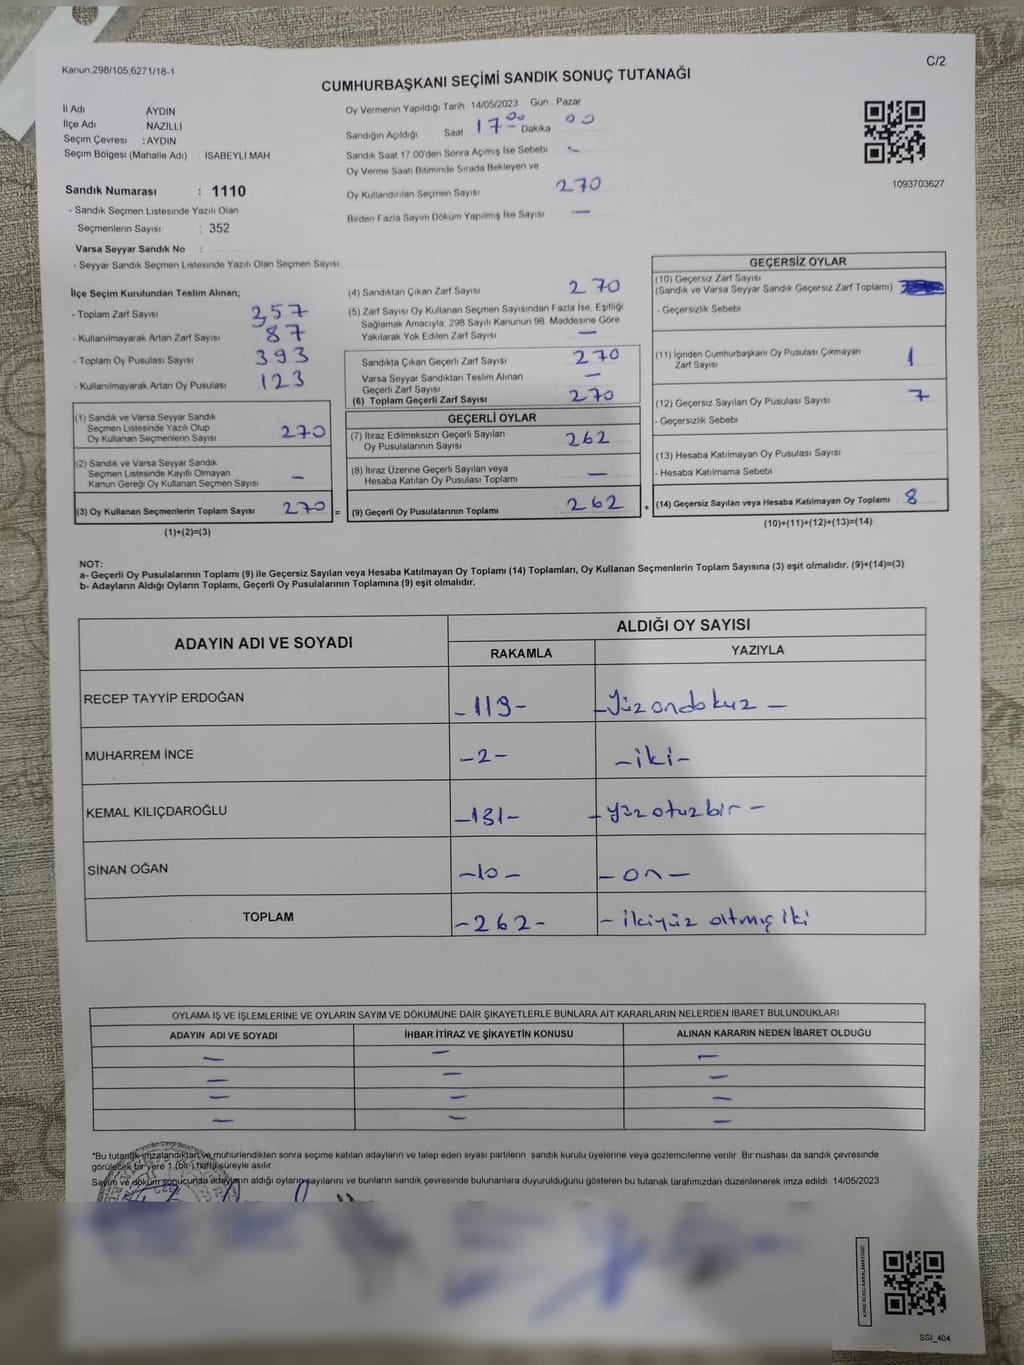 Kanun;298/105;6271/18-1
C/2
CUMHURBAŞKANI SEÇİMİ SANDIK SONUÇ TUTANAĞI
İl Adı AYDIN
İlçe Adı NAZİLLİ
Seçim Çevresi : AYDIN
Seçim Bölgesi (Mahalle Adı) İSABEYLİ MAH
Sandık Numarası : 1110
- Sandık Seçmen Listesinde Yazılı Olan
Seçmenlerin Sayısı : 352
Varsa Seyyar Sandık No :
- Seyyar Sandık Seçmen Listesinde Yazılı Olan Seçmen Sayısı
Oy Vermenin Yapıldığı Tarih 14/05/2023 Gün Pazar
Sandığın Açıldığı Saat 17 00 Dakika 00
Sandık Saat 17 00'den Sonra Açımış İse Sebebi -
Oy Verme Saati Bitiminde Sırada Bekleyen ve
Oy Kullandırılan Seçmen Sayısı 270
Birden Fazla Sayım Döküm Yapılmış İse Sayısı —
1093703627
İlçe Seçim Kurulundan Teslim Alınan;
- Toplam Zarf Sayısı 357
- Kullanılmayarak Artan Zarf Sayısı 87
- Toplam Oy Pusulası Sayısı 393
- Kullanılmayarak Artan Oy Pusulası 123
(1) Sandık ve Varsa Seyyar Sandık
Seçmen Listesinde Yazılı Olup
Oy Kullanan Seçmenlerin Sayısı 270
(2) Sandık ve Varsa Seyyar Sandık
Seçmen Listesinde Kayıtlı Olmayan
Kanun Gereği Oy Kullanan Seçmen Sayısı -
(3) Oy Kullanan Seçmenlerin Toplam Sayısı 270 =
(1)+(2)=(3)
(4) Sandıktan Çıkan Zarf Sayısı 270
(5) Zarf Sayısı Oy Kullanan Seçmen Sayısından Fazla İse, Eşitliği
Sağlamak Amacıyla, 298 Sayılı Kanunun 98. Maddesine Göre
Yakılarak Yok Edilen Zarf Sayısı —
Sandıkta Çıkan Geçerli Zarf Sayısı 270
Varsa Seyyar Sandıktan Teslim Alınan
Geçerli Zarf Sayısı —
(6) Toplam Geçerli Zarf Sayısı 270
GEÇERLİ OYLAR
(7) İtiraz Edilmeksizin Geçerli Sayılan
Oy Pusulalarının Sayısı 262
(8) İtiraz Üzerine Geçerli Sayılan veya
Hesaba Katılan Oy Pusulası Toplamı —
(9) Geçerli Oy Pusulalarının Toplamı 262 +
GEÇERSİZ OYLAR
(10) Geçersiz Zarf Sayısı
(Sandık ve Varsa Seyyar Sandık Geçersiz Zarf Toplamı)
- Geçersizlik Sebebi
(11) İçinden Cumhurbaşkanı Oy Pusulası Çıkmayan
Zarf Sayısı 1
(12) Geçersiz Sayılan Oy Pusulası Sayısı 7
- Geçersizlik Sebebi
(13) Hesaba Katılmayan Oy Pusulası Sayısı
- Hesaba Katılmama Sebebi
(14) Geçersiz Sayılan veya Hesaba Katılmayan Oy Toplamı 8
(10)+(11)+(12)+(13)=(14)
NOT:
a- Geçerli Oy Pusulalarının Toplamı (9) ile Geçersiz Sayılan veya Hesaba Katılmayan Oy Toplamı (14) Toplamları, Oy Kullanan Seçmenlerin Toplam Sayısına (3) eşit olmalıdır. (9)+(14)=(3)
b- Adayların Aldığı Oyların Toplamı, Geçerli Oy Pusulalarının Toplamına (9) eşit olmalıdır.
ADAYIN ADI VE SOYADI ALDIĞI OY SAYISI
RAKAMLA YAZIYLA
RECEP TAYYİP ERDOĞAN -119- -Yüz ondokuz -
MUHARREM İNCE -2- -iki-
KEMAL KILIÇDAROĞLU -131- -Yüz otuzbir -
SİNAN OĞAN -10- -on-
TOPLAM -262- - ikiyüz altmış iki
OYLAMA İŞ VE İŞLEMLERİNE VE OYLARIN SAYIM VE DÖKÜMÜNE DAİR ŞİKAYETLERLE BUNLARA AİT KARARLARIN NELERDEN İBARET BULUNDUKLARI
ADAYIN ADI VE SOYADI İHBAR İTİRAZ VE ŞİKAYETİN KONUSU ALINAN KARARIN NEDEN İBARET OLDUĞU
— — —
— — —
— — —
— — —
*Bu tutanak imzalandıktan ve mühürlendikten sonra seçime katılan adayların ve talep eden siyasi partilerin sandık kurulu üyelerine veya gözlemcilerine verilir. Bir nüshası da sandık çevresinde
görülecek bir yere 1 (bir) hafta süreyle asılır.
Sayım ve döküm sonucunda adayların aldığı oyların sayılarını ve bunların sandık çevresinde bulunanlara duyurulduğunu gösteren bu tutanak tarafımızdan düzenlenerek imza edildi. 14/05/2023
KARE KODU KARALAMAYINIZ!
SSI_404